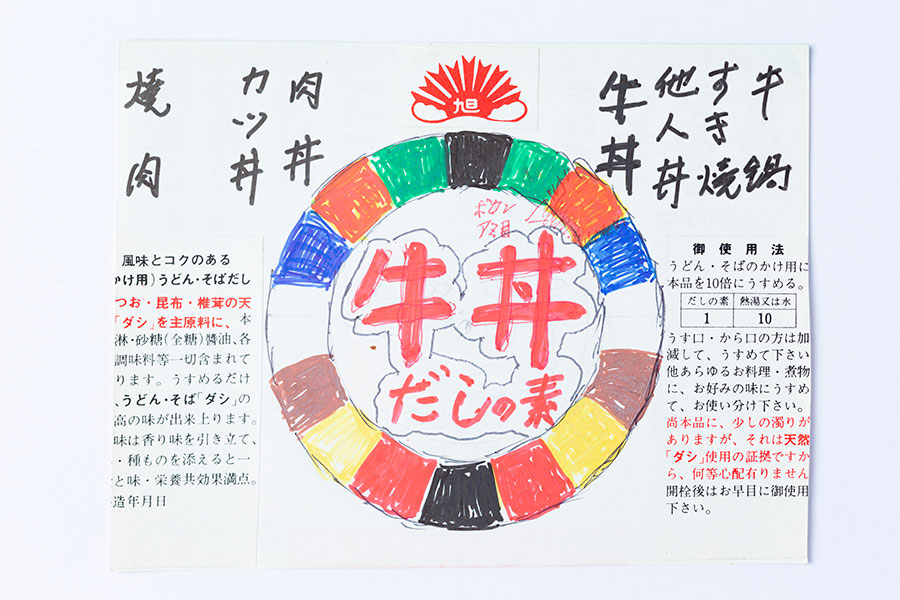 牛鍋
すき焼
他人丼
牛丼
肉丼
カツ丼
焼肉
旭
ボカシ
アミ目
牛丼
だしの素
風味とコクのある
かけ用)うどん・そばだし
つお・昆布・椎茸の天
「ダシ」を主原料に、本
淋・砂糖(全糖)醬油、各
調味料等一切含まれて
ります。うすめるだけ
、うどん・そば「ダシ」の
高の味が出来上ります。
味は香り味を引き立て、
・種ものを添えると一
と味・栄養共効果満点。
造年月日
御使用法
うどん・そばのかけ用に
本品を10倍にうすめる。
だしの素 熱湯又は水
1 10
うす口・から口の方は加
減して、うすめて下さい
他あらゆるお料理・煮物
に、お好みの味にうすめ
て、お使い分け下さい。
尚本品に、少しの濁りが
ありますが、それは天然
「ダシ」使用の証拠ですか
ら、何等心配有りません
開栓後はお早目に御使用
下さい。